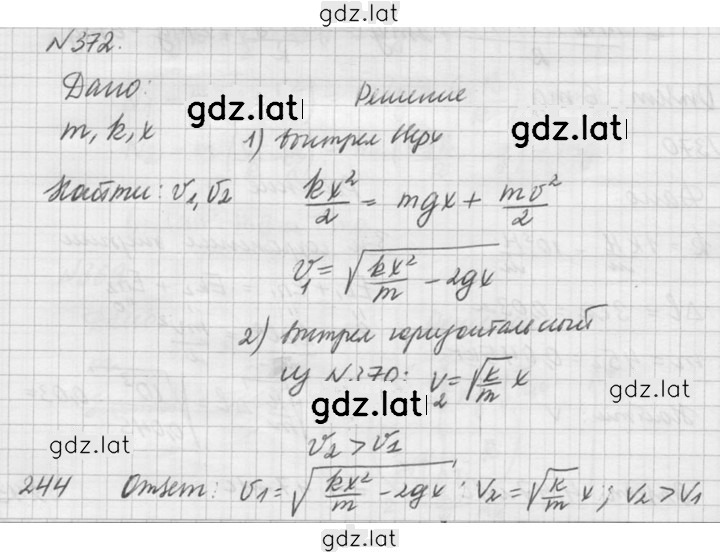 gdz.lat
№372.
Дано: Решение
gdz.lat gdz.lat
m, k, x 1) выстрел вверх
Найти: v₁, v₂ kx²/2 = mgx + mv²/2
v₁ = √(kx²/m − 2gx)
2) выстрел горизонтальный
из №370: v₂ = √(k/m) x
gdz.lat gdz.lat
gdz.lat v₂ > v₁
244 Ответ: v₁ = √(kx²/m − 2gx); v₂ = √(k/m) x; v₂ > v₁
gdz.lat